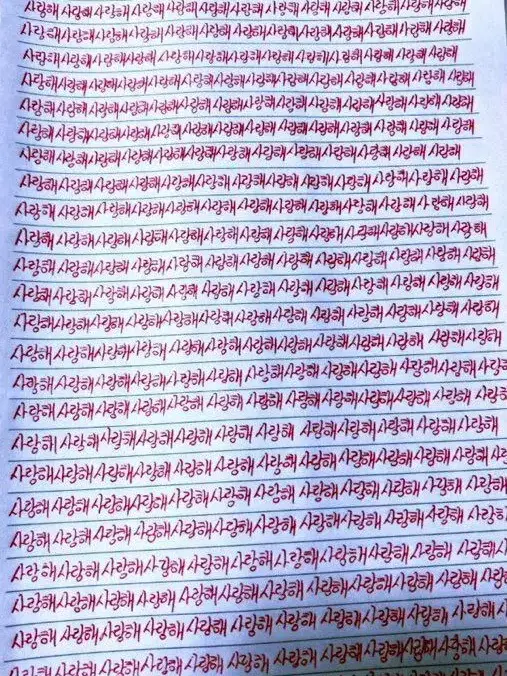 사랑해 사랑해 사랑해 사랑해 사랑해 사랑해 사랑해 사랑해 사랑해 사랑해 사랑해 사랑해 사랑해
사랑해 사랑해 사랑해 사랑해 사랑해 사랑해 사랑해 사랑해 사랑해 사랑해 사랑해 사랑해 사랑해
사랑해 사랑해 사랑해 사랑해 사랑해 사랑해 사랑해 사랑해 사랑해 사랑해 사랑해 사랑해 사랑해
사랑해 사랑해 사랑해 사랑해 사랑해 사랑해 사랑해 사랑해 사랑해 사랑해 사랑해 사랑해 사랑해
사랑해 사랑해 사랑해 사랑해 사랑해 사랑해 사랑해 사랑해 사랑해 사랑해 사랑해 사랑해 사랑해
사랑해 사랑해 사랑해 사랑해 사랑해 사랑해 사랑해 사랑해 사랑해 사랑해 사랑해 사랑해 사랑해
사랑해 사랑해 사랑해 사랑해 사랑해 사랑해 사랑해 사랑해 사랑해 사랑해 사랑해 사랑해 사랑해
사랑해 사랑해 사랑해 사랑해 사랑해 사랑해 사랑해 사랑해 사랑해 사랑해 사랑해 사랑해 사랑해
사랑해 사랑해 사랑해 사랑해 사랑해 사랑해 사랑해 사랑해 사랑해 사랑해 사랑해 사랑해 사랑해
사랑해 사랑해 사랑해 사랑해 사랑해 사랑해 사랑해 사랑해 사랑해 사랑해 사랑해 사랑해 사랑해
사랑해 사랑해 사랑해 사랑해 사랑해 사랑해 사랑해 사랑해 사랑해 사랑해 사랑해 사랑해 사랑해
사랑해 사랑해 사랑해 사랑해 사랑해 사랑해 사랑해 사랑해 사랑해 사랑해 사랑해 사랑해 사랑해
사랑해 사랑해 사랑해 사랑해 사랑해 사랑해 사랑해 사랑해 사랑해 사랑해 사랑해 사랑해 사랑해
사랑해 사랑해 사랑해 사랑해 사랑해 사랑해 사랑해 사랑해 사랑해 사랑해 사랑해 사랑해 사랑해
사랑해 사랑해 사랑해 사랑해 사랑해 사랑해 사랑해 사랑해 사랑해 사랑해 사랑해 사랑해 사랑해
사랑해 사랑해 사랑해 사랑해 사랑해 사랑해 사랑해 사랑해 사랑해 사랑해 사랑해 사랑해 사랑해
사랑해 사랑해 사랑해 사랑해 사랑해 사랑해 사랑해 사랑해 사랑해 사랑해 사랑해 사랑해
사랑해 사랑해 사랑해 사랑해 사랑해 사랑해 사랑해 사랑해 사랑해 사랑해 사랑해 사랑해
사랑해 사랑해 사랑해 사랑해 사랑해 사랑해 사랑해 사랑해 사랑해 사랑해 사랑해 사랑해
사랑해 사랑해 사랑해 사랑해 사랑해 사랑해 사랑해 사랑해 사랑해 사랑해 사랑해 사랑해
사랑해 사랑해 사랑해 사랑해 사랑해 사랑해 사랑해 사랑해 사랑해 사랑해 사랑해
사랑해 사랑해 사랑해 사랑해 사랑해 사랑해 사랑해 사랑해 사랑해 사랑해 사랑해
사랑해 사랑해 사랑해 사랑해 사랑해 사랑해 사랑해 사랑해 사랑해 사랑해 사랑해
사랑해 사랑해 사랑해 사랑해 사랑해 사랑해 사랑해 사랑해 사랑해 사랑해